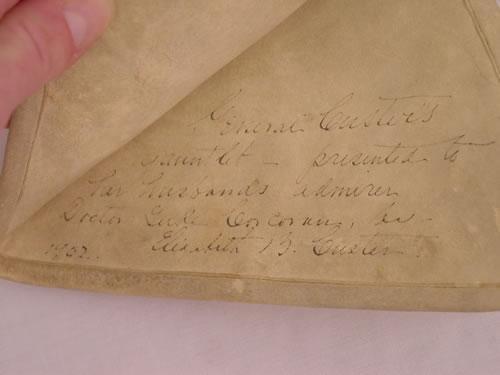 General Custer's
Gauntlet - presented to
her husband's admirer
Doctor Luke Corcoran, by
1902. Elizabeth B. Custer.